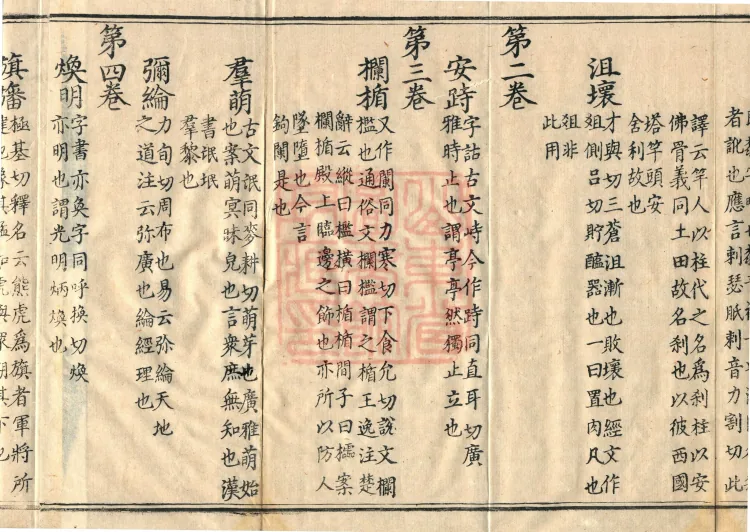 者訛也應言剌瑟胝剌音力割切此
譯云竿人以柱代之名為刹柱以安
佛骨義同土田故名刹也以彼西國
塔竿頭安
舍利故也
沮壞
才與切三蒼沮漸也敗壞也經文作
俎側呂切貯醢器也一曰置肉几也
俎非
此用
第二卷
安跱
字詁古文峙今作跱同直耳切廣
雅跱止也謂亭亭然獨止立也
第三卷
欄楯
又作闌同力寒切下食允切説文欄
檻也通俗文欄檻謂之楯王逸注楚
辭云縱曰檻橫曰楯楯間子曰櫺案
欄楯殿上臨邊之飾也亦所以防人
墜墮也今言
鉤闌是也
羣萌
古文氓同麥耕切萌芽也廣雅萌始
也案萌冥昧皃也言衆庶無知也漢
書氓氓
羣黎也
彌綸
力旬切周布也易云弥綸天地
之道注云弥廣也綸經理也
第四卷
煥明
字書亦奐字同呼換切煥
亦明也謂光明炳煥也
旗旛
極基切釋名云熊虎爲旗者軍將所